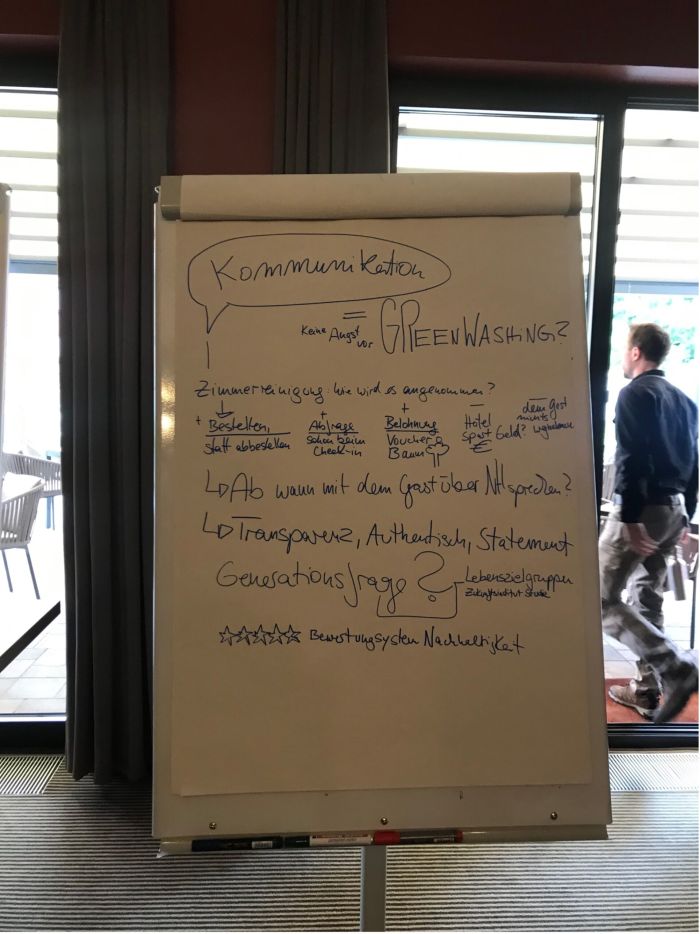 Kommunikation
=
Keine Angst vor GREENWASHING?
Zimmerreinigung: Wie wird es angenommen?
+ Bestellen, statt abbestellen
+ Abfrage schon beim Check-in
+ Belohnung Voucher Baum
- Hotel spart Geld? €
- dem Gast nichts wegnehmen
↳ Ab wann mit dem Gast über NH sprechen?
↳ Transparenz, Authentisch, Statement
Generationsfrage?
Lebenszielgruppen
Zukunftsinstitut Studie
☆☆☆☆☆ Bewertungsystem Nachhaltigkeit